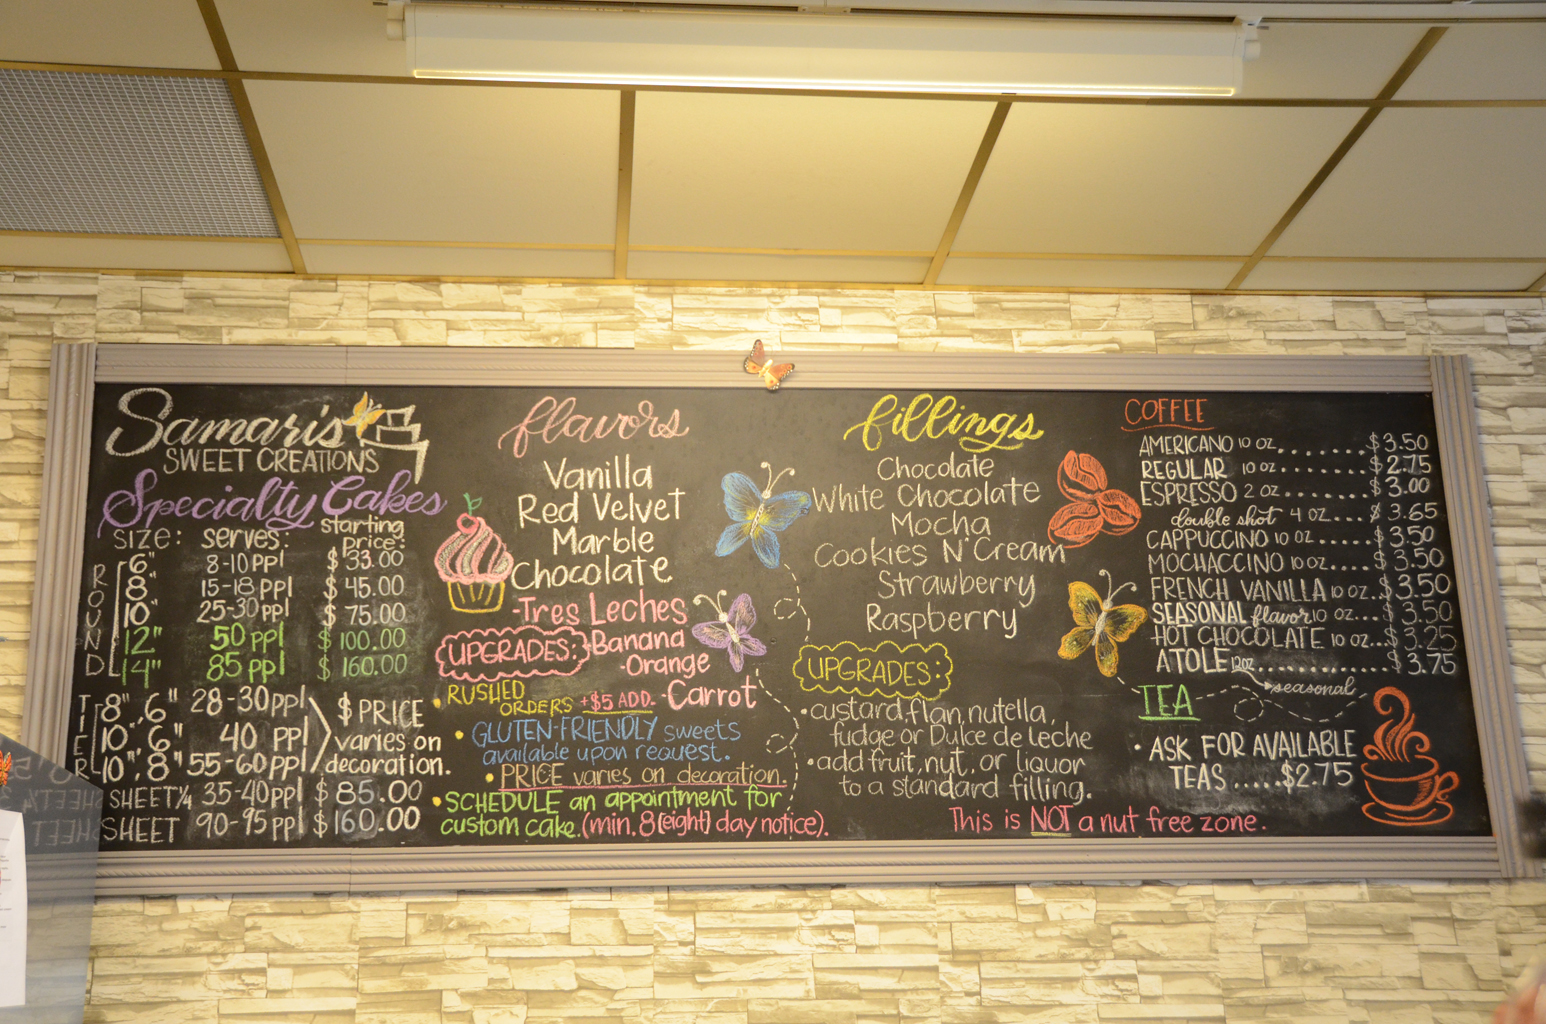 Samari's
SWEET CREATIONS
Specialty Cakes
SIZE: serves: starting price:
ROUND
6" 8-10 ppl $33.00
8" 15-18 ppl $45.00
10" 25-30 ppl $75.00
12" 50 ppl $100.00
14" 85 ppl $160.00
TIER
8", 6" 28-30 ppl
10", 6" 40 ppl
10", 8" 55-60 ppl
$ PRICE
varies on
decoration.
SHEET 1/4 35-40 ppl $85.00
SHEET 90-95 ppl $160.00
flavors
Vanilla
Red Velvet
Marble
Chocolate
-Tres Leches
UPGRADES:
·Banana
·Orange
·Carrot
·RUSHED
ORDERS +$5 ADD.
·GLUTEN-FRIENDLY sweets
available upon request.
·PRICE varies on decoration.
·SCHEDULE an appointment for
custom cake.(min. 8(eight) day notice).
fillings
Chocolate
White Chocolate
Mocha
Cookies N' Cream
Strawberry
Raspberry
UPGRADES:
·custard, flan, nutella,
fudge or Dulce de leche
·add fruit, nut, or liquor
to a standard filling.
This is NOT a nut free zone.
COFFEE
AMERICANO 10 OZ.......$3.50
REGULAR 10 OZ.......$2.75
ESPRESSO 2 OZ.......$3.00
double shot 4 OZ....$3.65
CAPPUCCINO 10 OZ....$3.50
MOCHACCINO 10 OZ...$3.50
FRENCH VANILLA 10 OZ..$3.50
SEASONAL flavor 10 OZ...$3.50
HOT CHOCOLATE 10 OZ...$3.25
ATOLE 12oz...............$3.75
seasonal
TEA
· ASK FOR AVAILABLE
TEAS.....$2.75